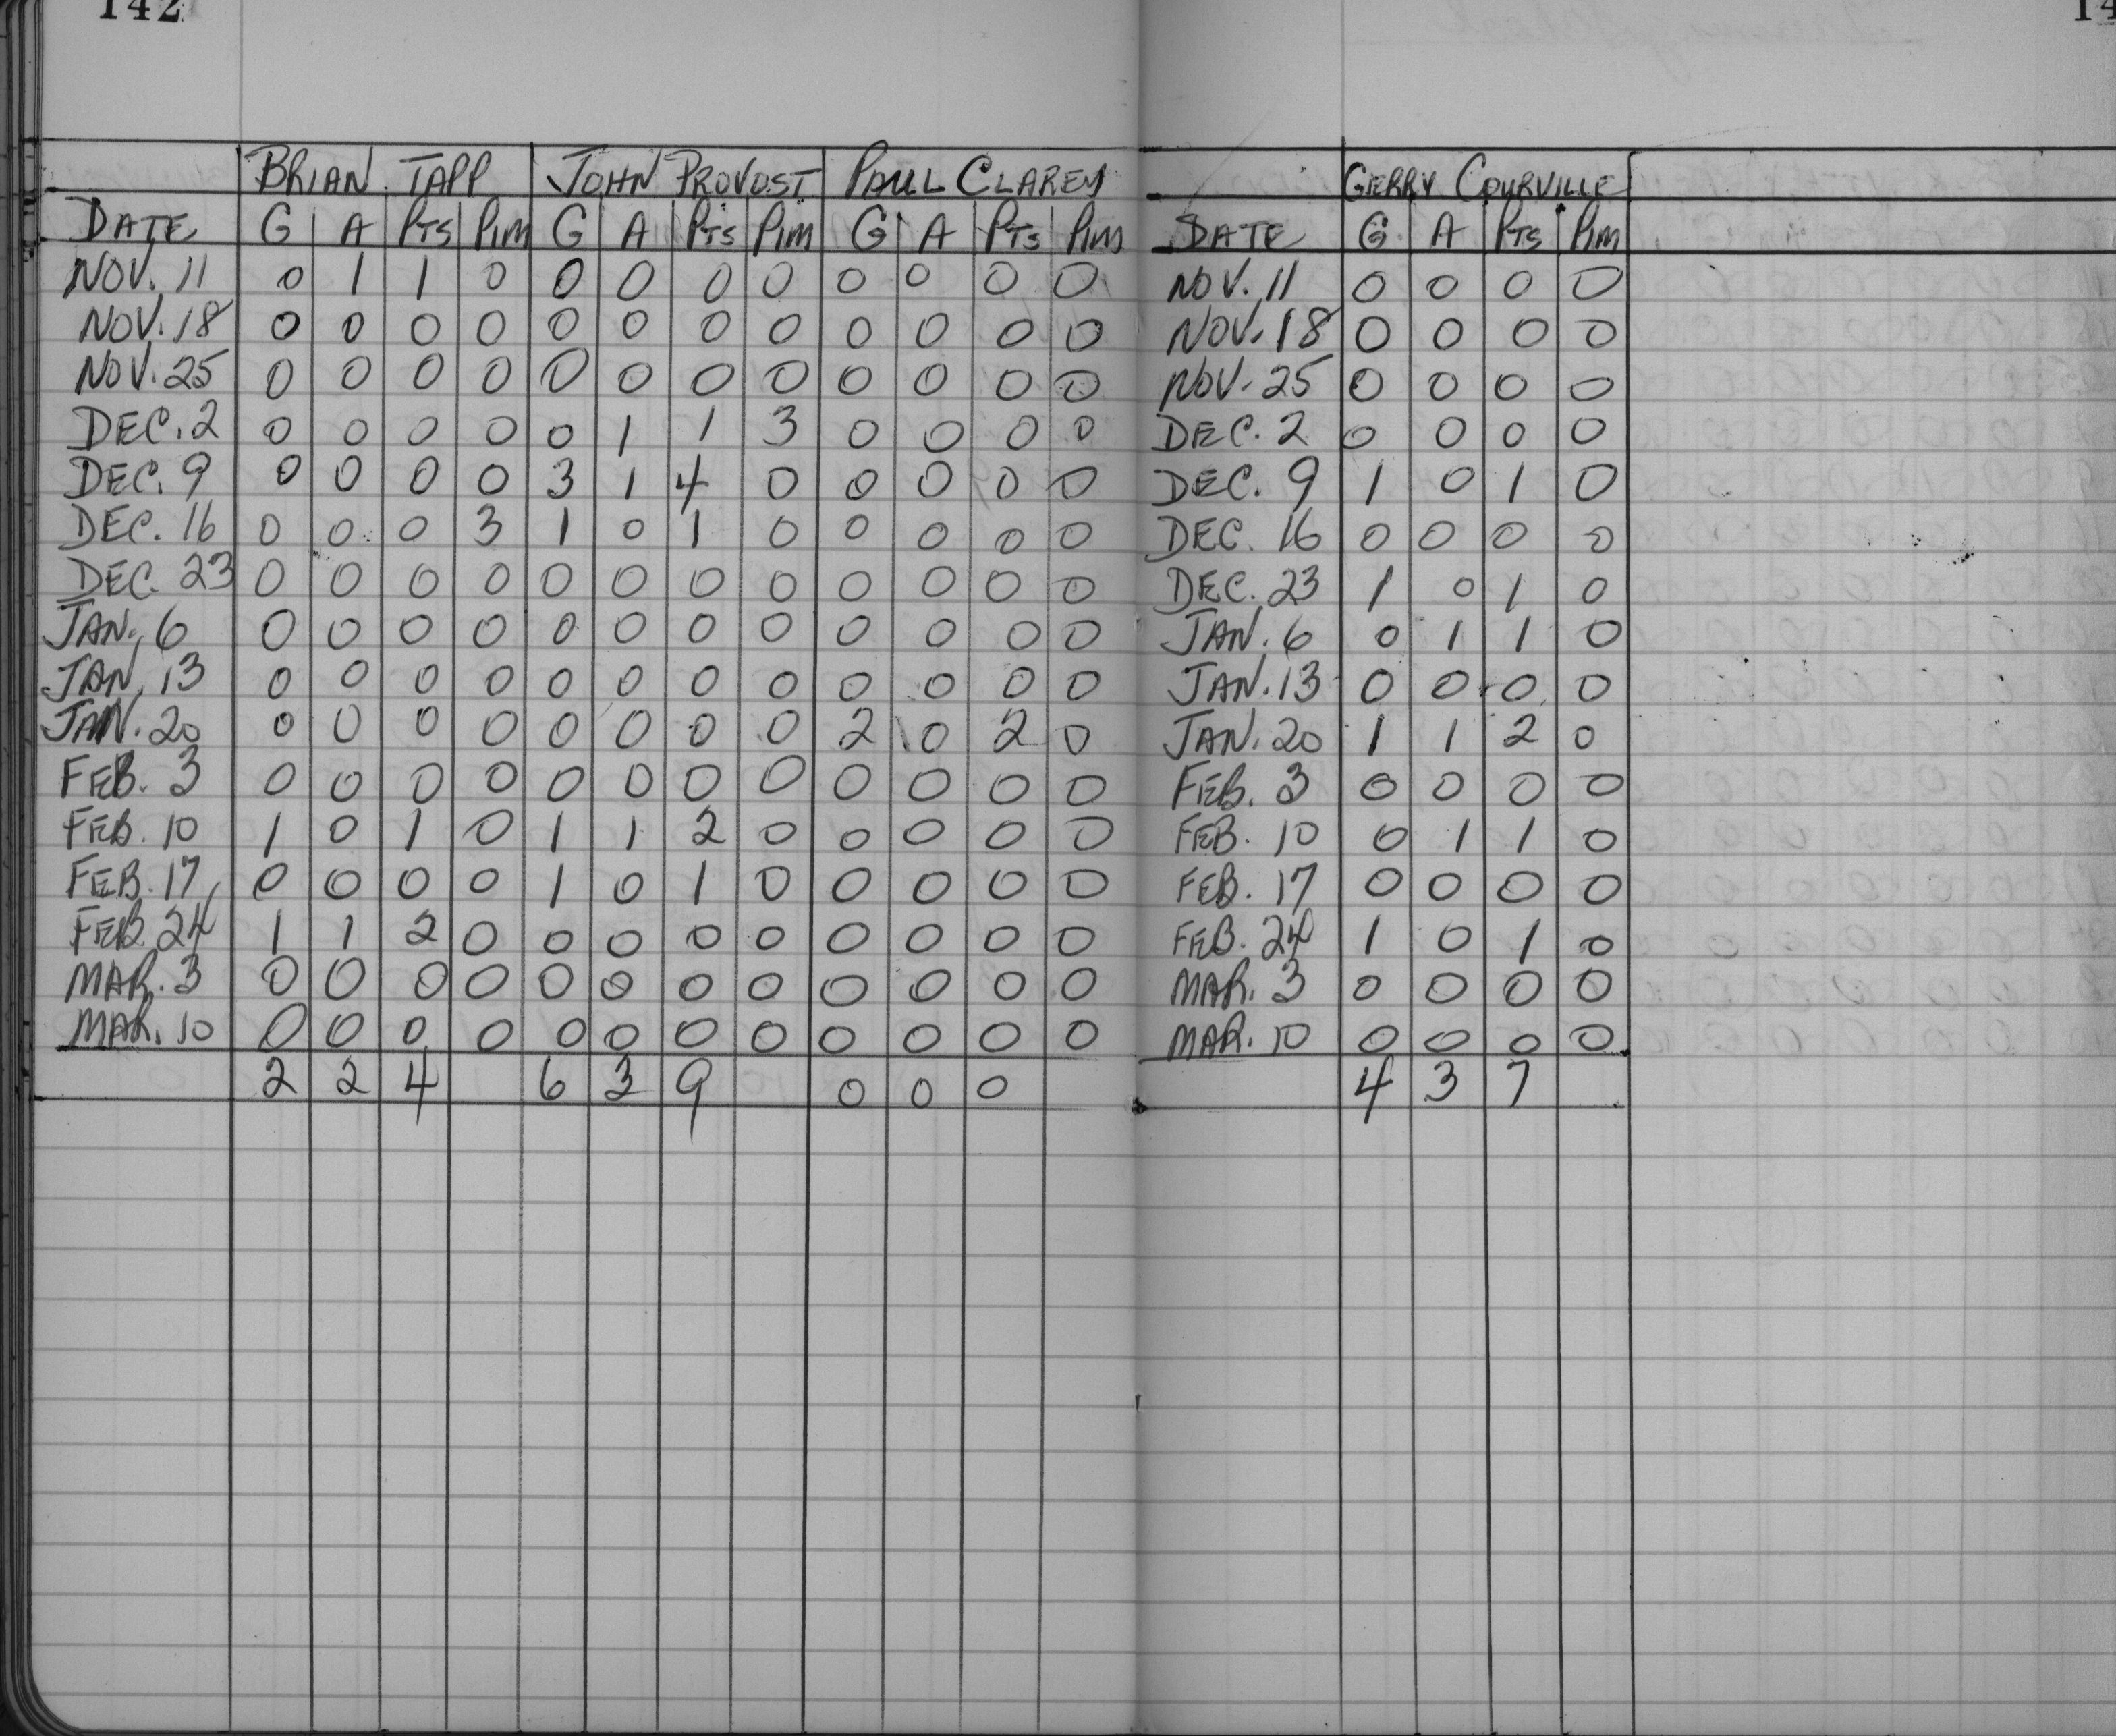 142
BRIAN TAPP JOHN PROVOST PAUL CLAREY
DATE G A PTS PIM G A PTS PIM G A PTS PIM
NOV. 11 0 1 1 0 0 0 0 0 0 0 0 0
NOV. 18 0 0 0 0 0 0 0 0 0 0 0 0
NOV. 25 0 0 0 0 0 0 0 0 0 0 0 0
DEC. 2 0 0 0 0 0 1 1 3 0 0 0 0
DEC. 9 0 0 0 0 3 1 4 0 0 0 0 0
DEC. 16 0 0 0 3 1 0 1 0 0 0 0 0
DEC. 23 0 0 0 0 0 0 0 0 0 0 0 0
JAN. 6 0 0 0 0 0 0 0 0 0 0 0 0
JAN. 13 0 0 0 0 0 0 0 0 0 0 0 0
JAN. 20 0 0 0 0 0 0 0 0 2 0 2 0
FEB. 3 0 0 0 0 0 0 0 0 0 0 0 0
FEB. 10 1 0 1 0 1 1 2 0 0 0 0 0
FEB. 17 0 0 0 0 1 0 1 0 0 0 0 0
FEB. 24 1 1 2 0 0 0 0 0 0 0 0 0
MAR. 3 0 0 0 0 0 0 0 0 0 0 0 0
MAR. 10 0 0 0 0 0 0 0 0 0 0 0 0
2 2 4 6 3 9 0 0 0
14
GERRY COURVILLE
DATE G A PTS PIM
NOV. 11 0 0 0 0
NOV. 18 0 0 0 0
NOV. 25 0 0 0 0
DEC. 2 0 0 0 0
DEC. 9 1 0 1 0
DEC. 16 0 0 0 0
DEC. 23 1 0 1 0
JAN. 6 0 1 1 0
JAN. 13 0 0 0 0
JAN. 20 1 1 2 0
FEB. 3 0 0 0 0
FEB. 10 0 1 1 0
FEB. 17 0 0 0 0
FEB. 24 1 0 1 0
MAR. 3 0 0 0 0
MAR. 10 0 0 0 0
4 3 7